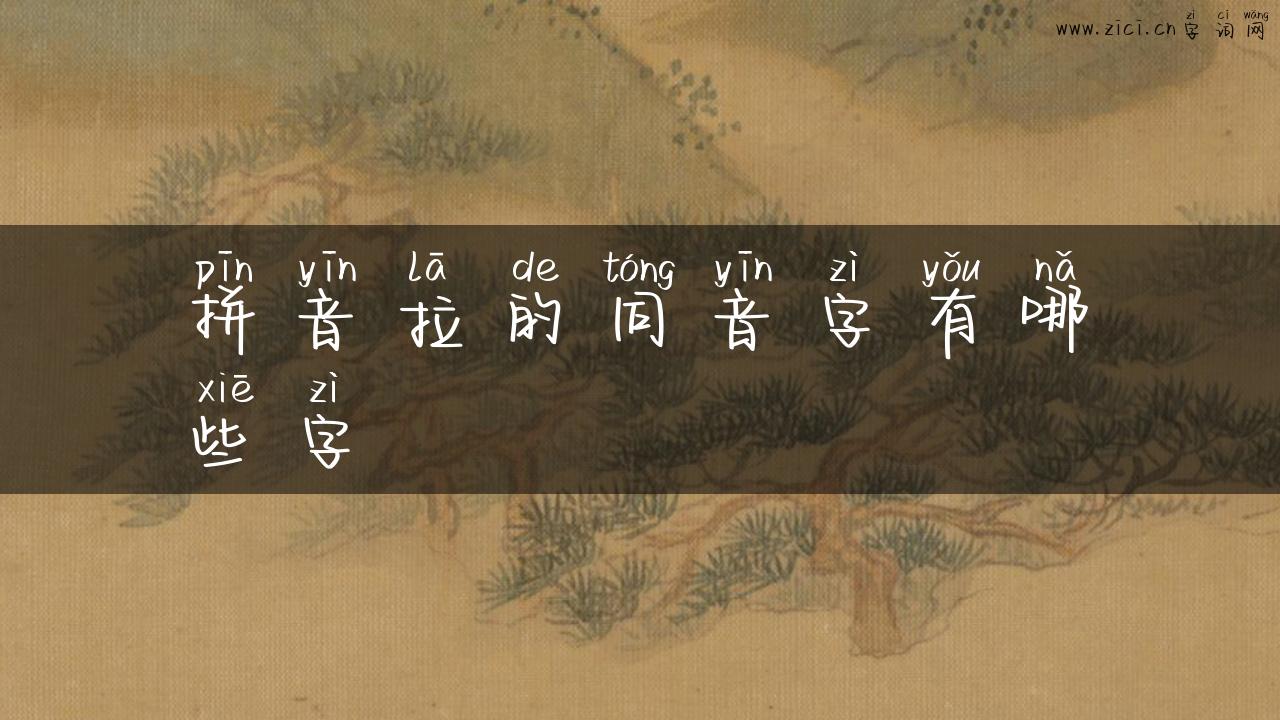 zì cí wǎng
www.zici.cn 字词网
pīn yīn lā de tóng yīn zì yǒu nǎ
拼音拉的同音字有哪
xiē zì
些字